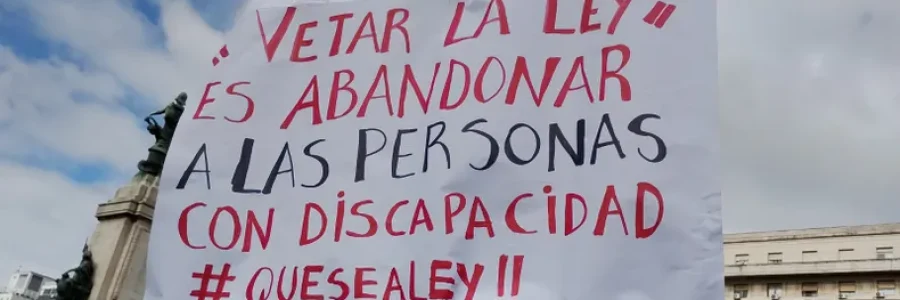 "VETAR LA LEY"
ES ABANDONAR
A LAS PERSONAS
CON DISCAPACIDAD
#QUESEALEY!!